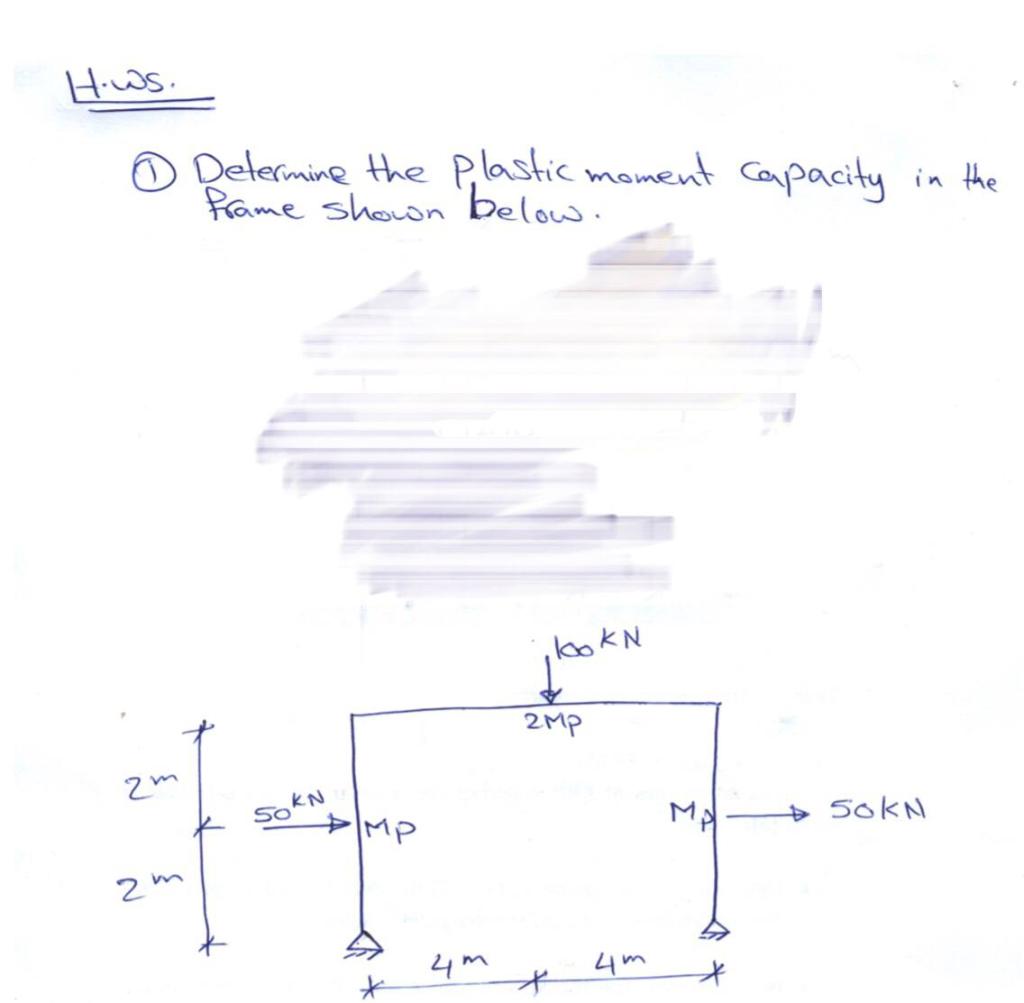 H.ws.
① Determine the plastic moment capacity in the
frame shown below.
100 KN
2Mp
2m
50 KN
Mp
Mp
50KN
2m
4m
4m